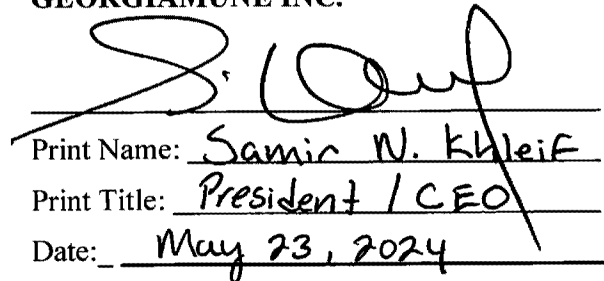 GEORGIAMUNE INC.
Print Name: Samir N. Khleif
Print Title: President / CEO
Date: May 23, 2024